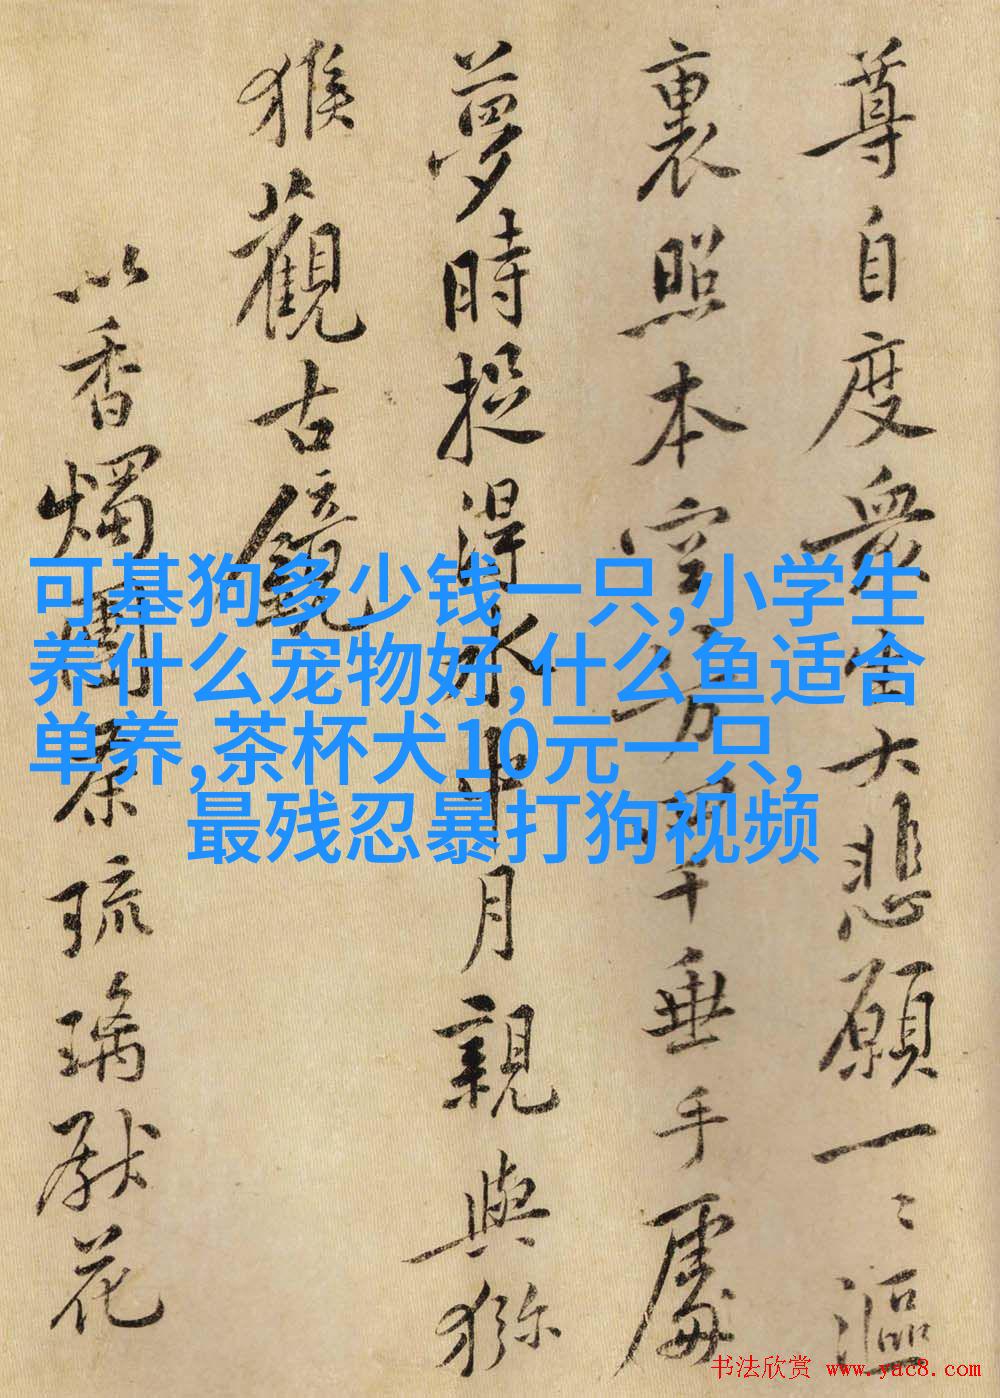 尊自度衆生大悲願一〻漚
裏照本空方垂手處
夢時捉得水中月親與獼
猴觀古鏡
以香燭團茶琉璃獻花
可基狗多少钱一只,小学生
养什么宠物好,什么鱼适合
单养,茶杯犬10元一只,
最残忍暴打狗视频
书法欣赏 www.yac8.com